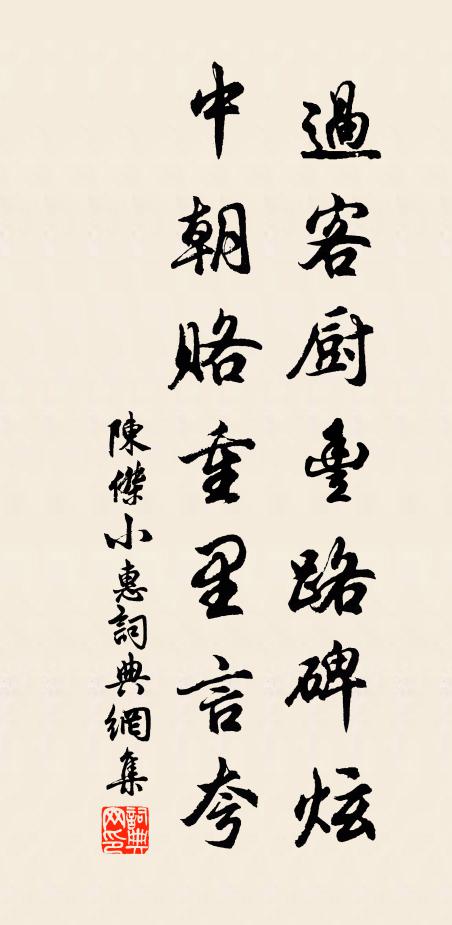 過客厨豊路碑炫
中朝賂重里言夸
陳傑小惠詞典網集
詞典网印